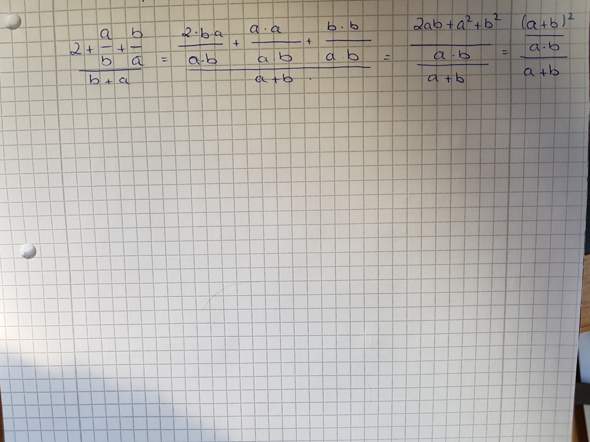 (2 + a/b + b/a)/(b + a) = ((2·b·a)/(a·b) + (a·a)/(a b) + (b·b)/(a b))/(a + b) = ((2ab + a² + b²)/(a·b))/(a + b) = ((a+b)²/(a·b))/(a + b)